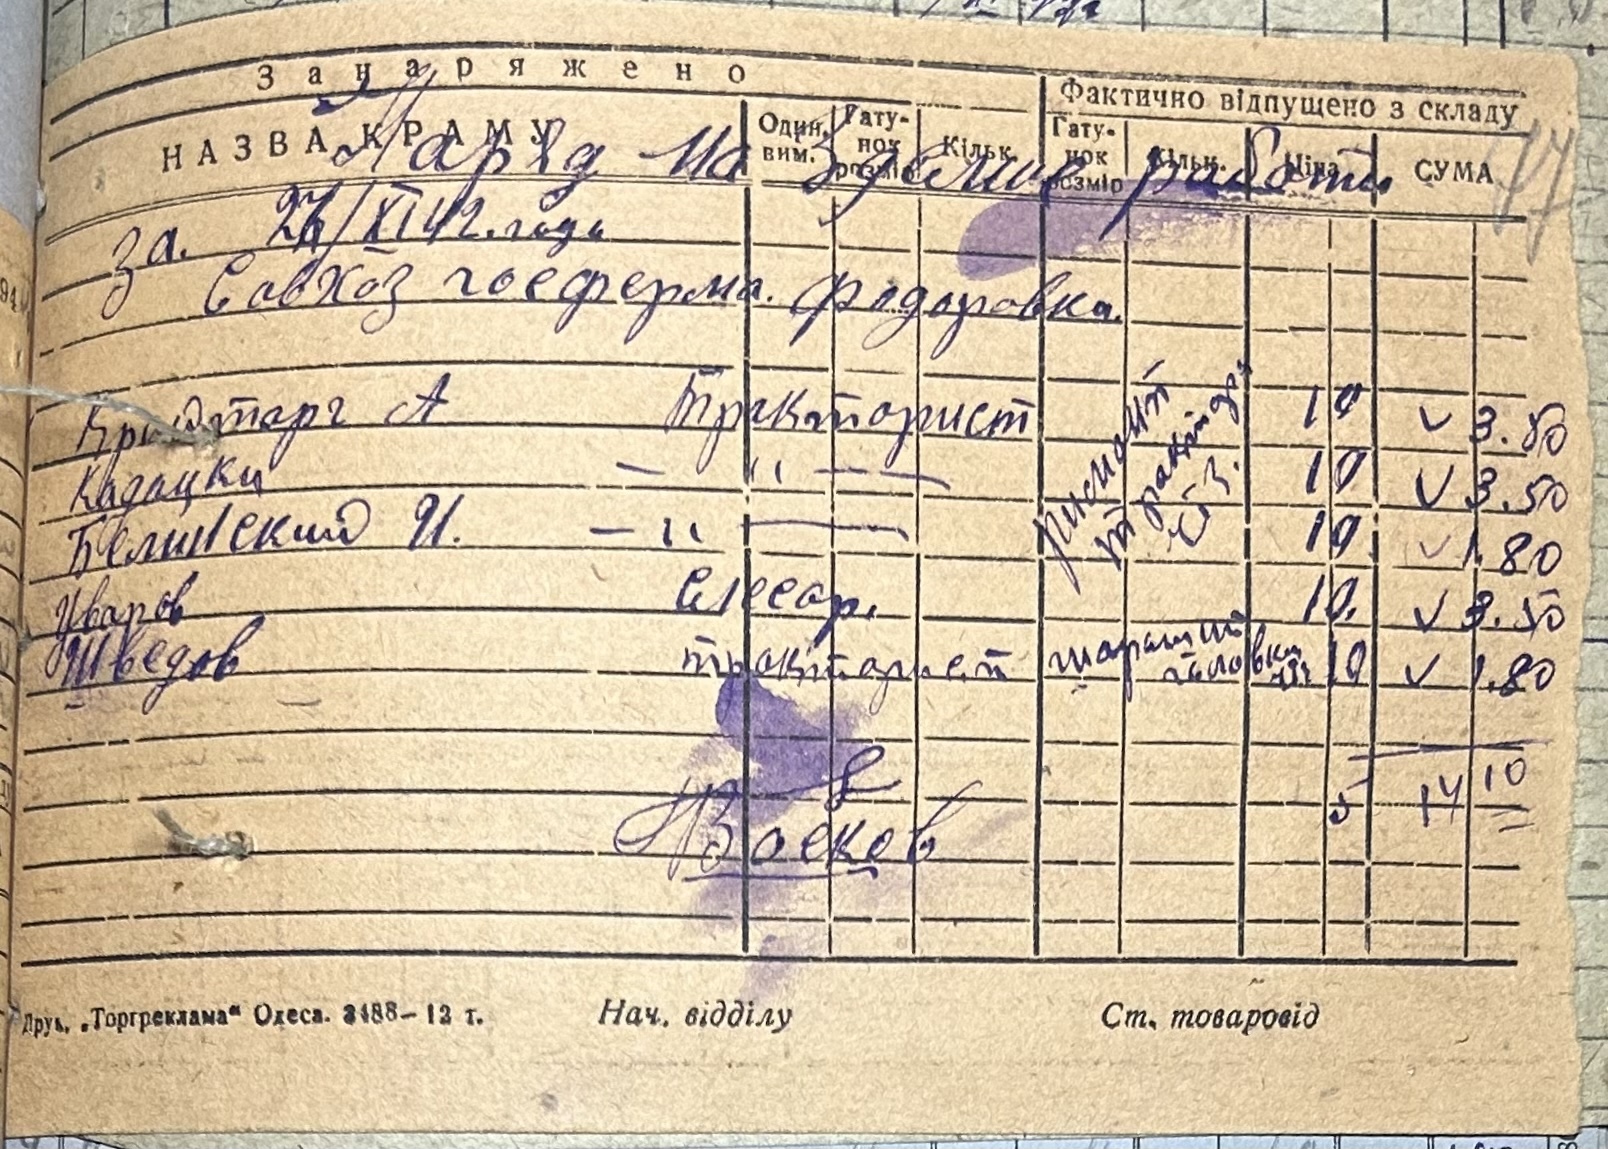 Занаряжено
Фактично відпущено з складу
НАЗВА КРАМУ
Один. вим.
Гатунок розмір
Кільк.
Гатунок розмір
Кільк.
Ціна
СУМА
Наряд на зделиые работи
За. 26/XI 42. года
Совхоз госферма. Федоровка.
А Тракторист 10 v 3.50
Кадацки — " — 10 v 3.50
Белинский И. — " — 10. v 1.80
Уваров Слесар. 10. v 3.50
Шведов тракторист 10 v 1.80
ремонт
трактора
СТЗ.
головки
5 14 10
Воеков
Друк. „Торгреклама" Одеса. 3488—12 т.
Нач. відділу
Ст. товаровід